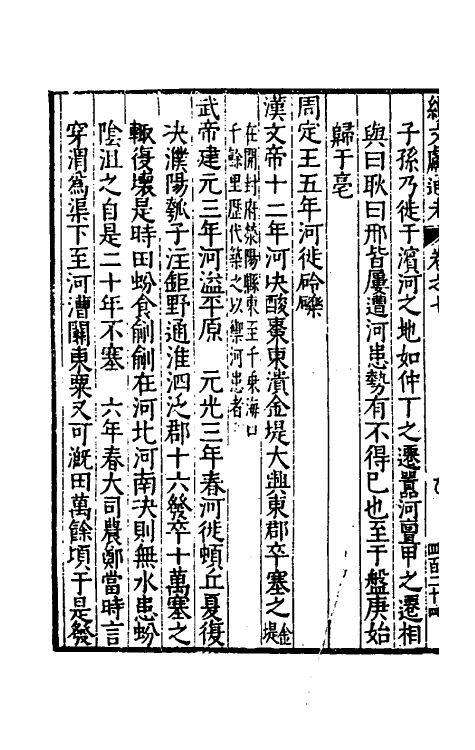 續文獻通考 卷之七
子孫乃徙于濱河之地如仲丁之遷囂河亶甲之遷相
與曰耿曰邢皆屢遭河患勢有不得已也至于盤庚始
歸于亳
周定王五年河徙砱礫
漢文帝十二年河决酸棗東潰金堤大興東郡卒塞之金堤
在開封府滎陽縣東至千乘海口
千餘里歷代築之以禦河患者
武帝建元三年河溢平原 元光三年春河徙頓丘夏復
决濮陽瓠子注鉅野通淮泗泛郡十六發卒十萬塞之
輙復壞是時田蚡食鄃鄃在河北河南决則無水患蚡
陰沮之自是二十年不塞 六年春大司農鄭當時言
穿渭爲渠下至河漕關東粟又可漑田萬餘頃于是發